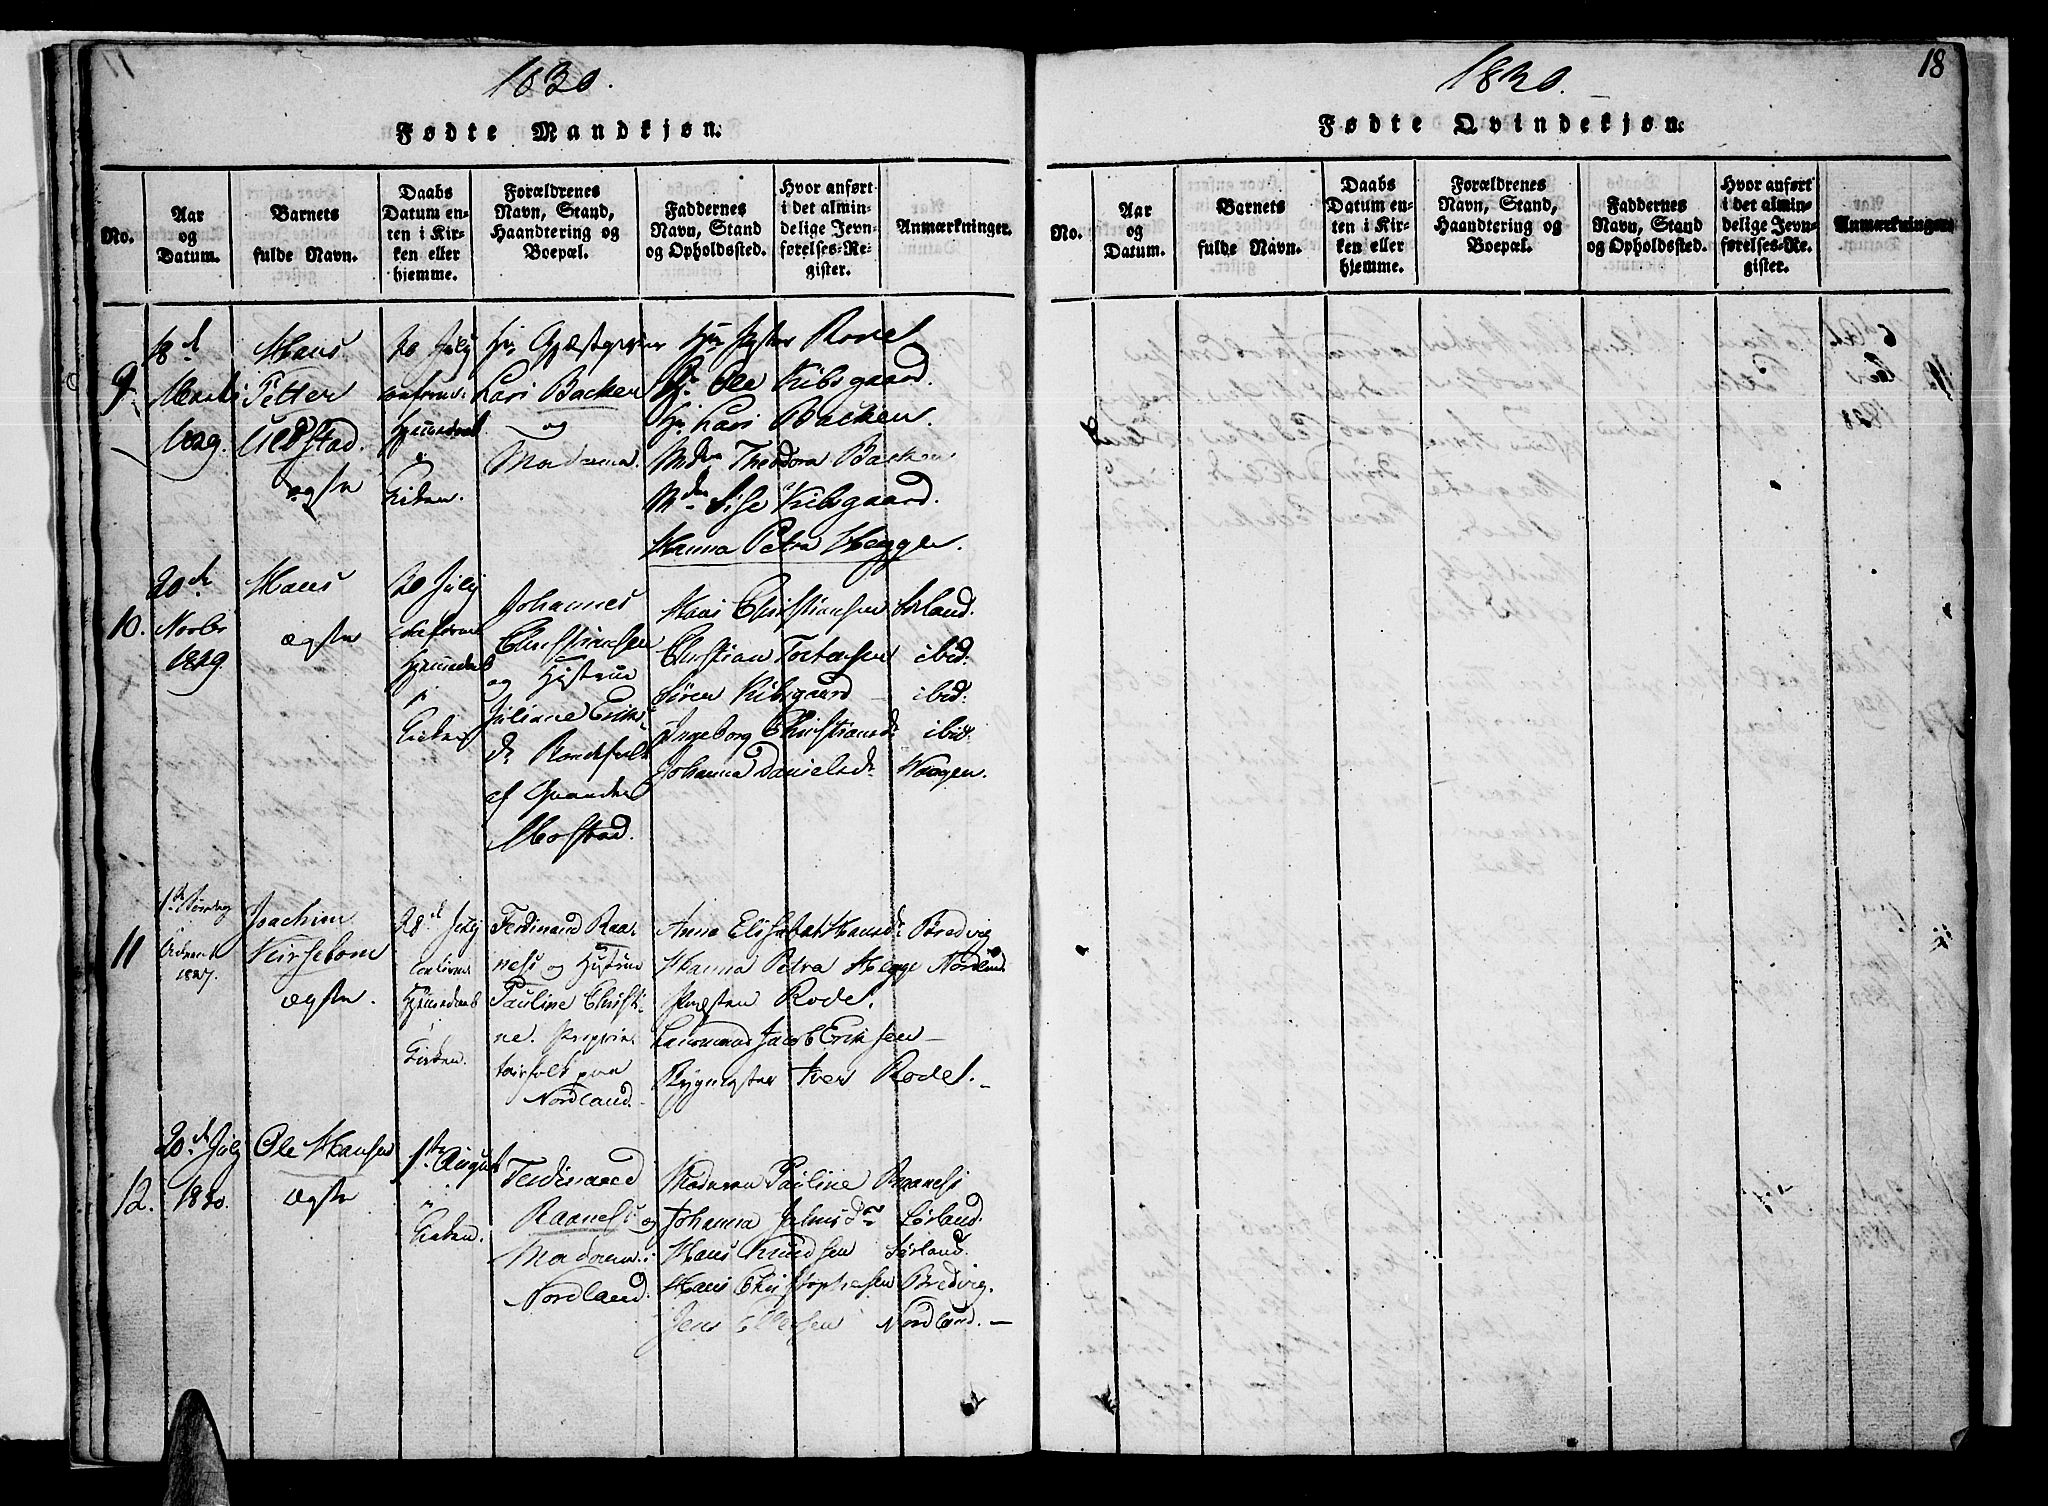 1830.
Fødte Mandkjøn.
No.
Aar
og
Datum.
Barnets
fulde Navn.
Daabs
Datum en-
ten i Kir-
ken eller
hjemme.
Forældrenes
Navn, Stand,
Haandtering og
Boepæl.
Faddernes
Navn, Stand
og Opholdssted.
Hvor anført
i det almin-
delige Jevn-
førelses-Re-
gister.
Anmærkninger.
9.
18d
1829.
Hans
Petter
ægte
20 July
Hjemmedøbt
i
Kirken.
Lars Backen
og
Madame.
Rodel
Hr Ole Kibsgaard.
Hr Lars Backen.
Theodora Backen
Kibsgaard.
Hanna Petra
10.
20de
Novbr
1829
Hans
ægte
20 July
Hjemmedaab
i
Kirken
Johannes
Christiansen
og Hustrue
Juliane Eriks
dr
af
Mostad.
Hans Christiansen Sørland.
Christian Torstensen ibid:
Søren Kibsgaard – ibid:
Ingeborg Christiansd: ibid:
Johanna Danielsdr Waagen.
11
1de Søndag
i Advent
1827.
Joachim
Kirsebom
ægte.
28d July
Hjemmedaab
i
Kirken.
Ferdinand Raa-
ness og Hustrue
Pauline Christi-
ne. Proprie-
tairfolk paa
Nordland.
Anna Elisabet Hansd: Bredvig
Hanna Petra Nordland
Præsten Rodel.
Lensmand Jacob Eriksen –
Iver Rodel. –
12.
20de July
1830.
Ole Hansen
ægte
1ste August
i
Kirken.
Ferdinand
Raaness og
Madame i
Nordland.
Madame Pauline Raaness
Johanna Sørland.
Hans Knudsen Sørland.
Hans Christophersen Bredvig.
Jens Nordland. –
1830.
18
Fødte Qvindekjøn.
No.
Aar
og
Datum.
Barnets
fulde Navn.
Daabs
Datum en-
ten i Kir-
ken eller
hjemme.
Forældrenes
Navn, Stand,
Haandtering og
Boepæl.
Faddernes
Navn, Stand
og Opholdssted.
Hvor anført
i det almin-
delige Jevn-
førelses-Re-
gister.
Anmærkninger.